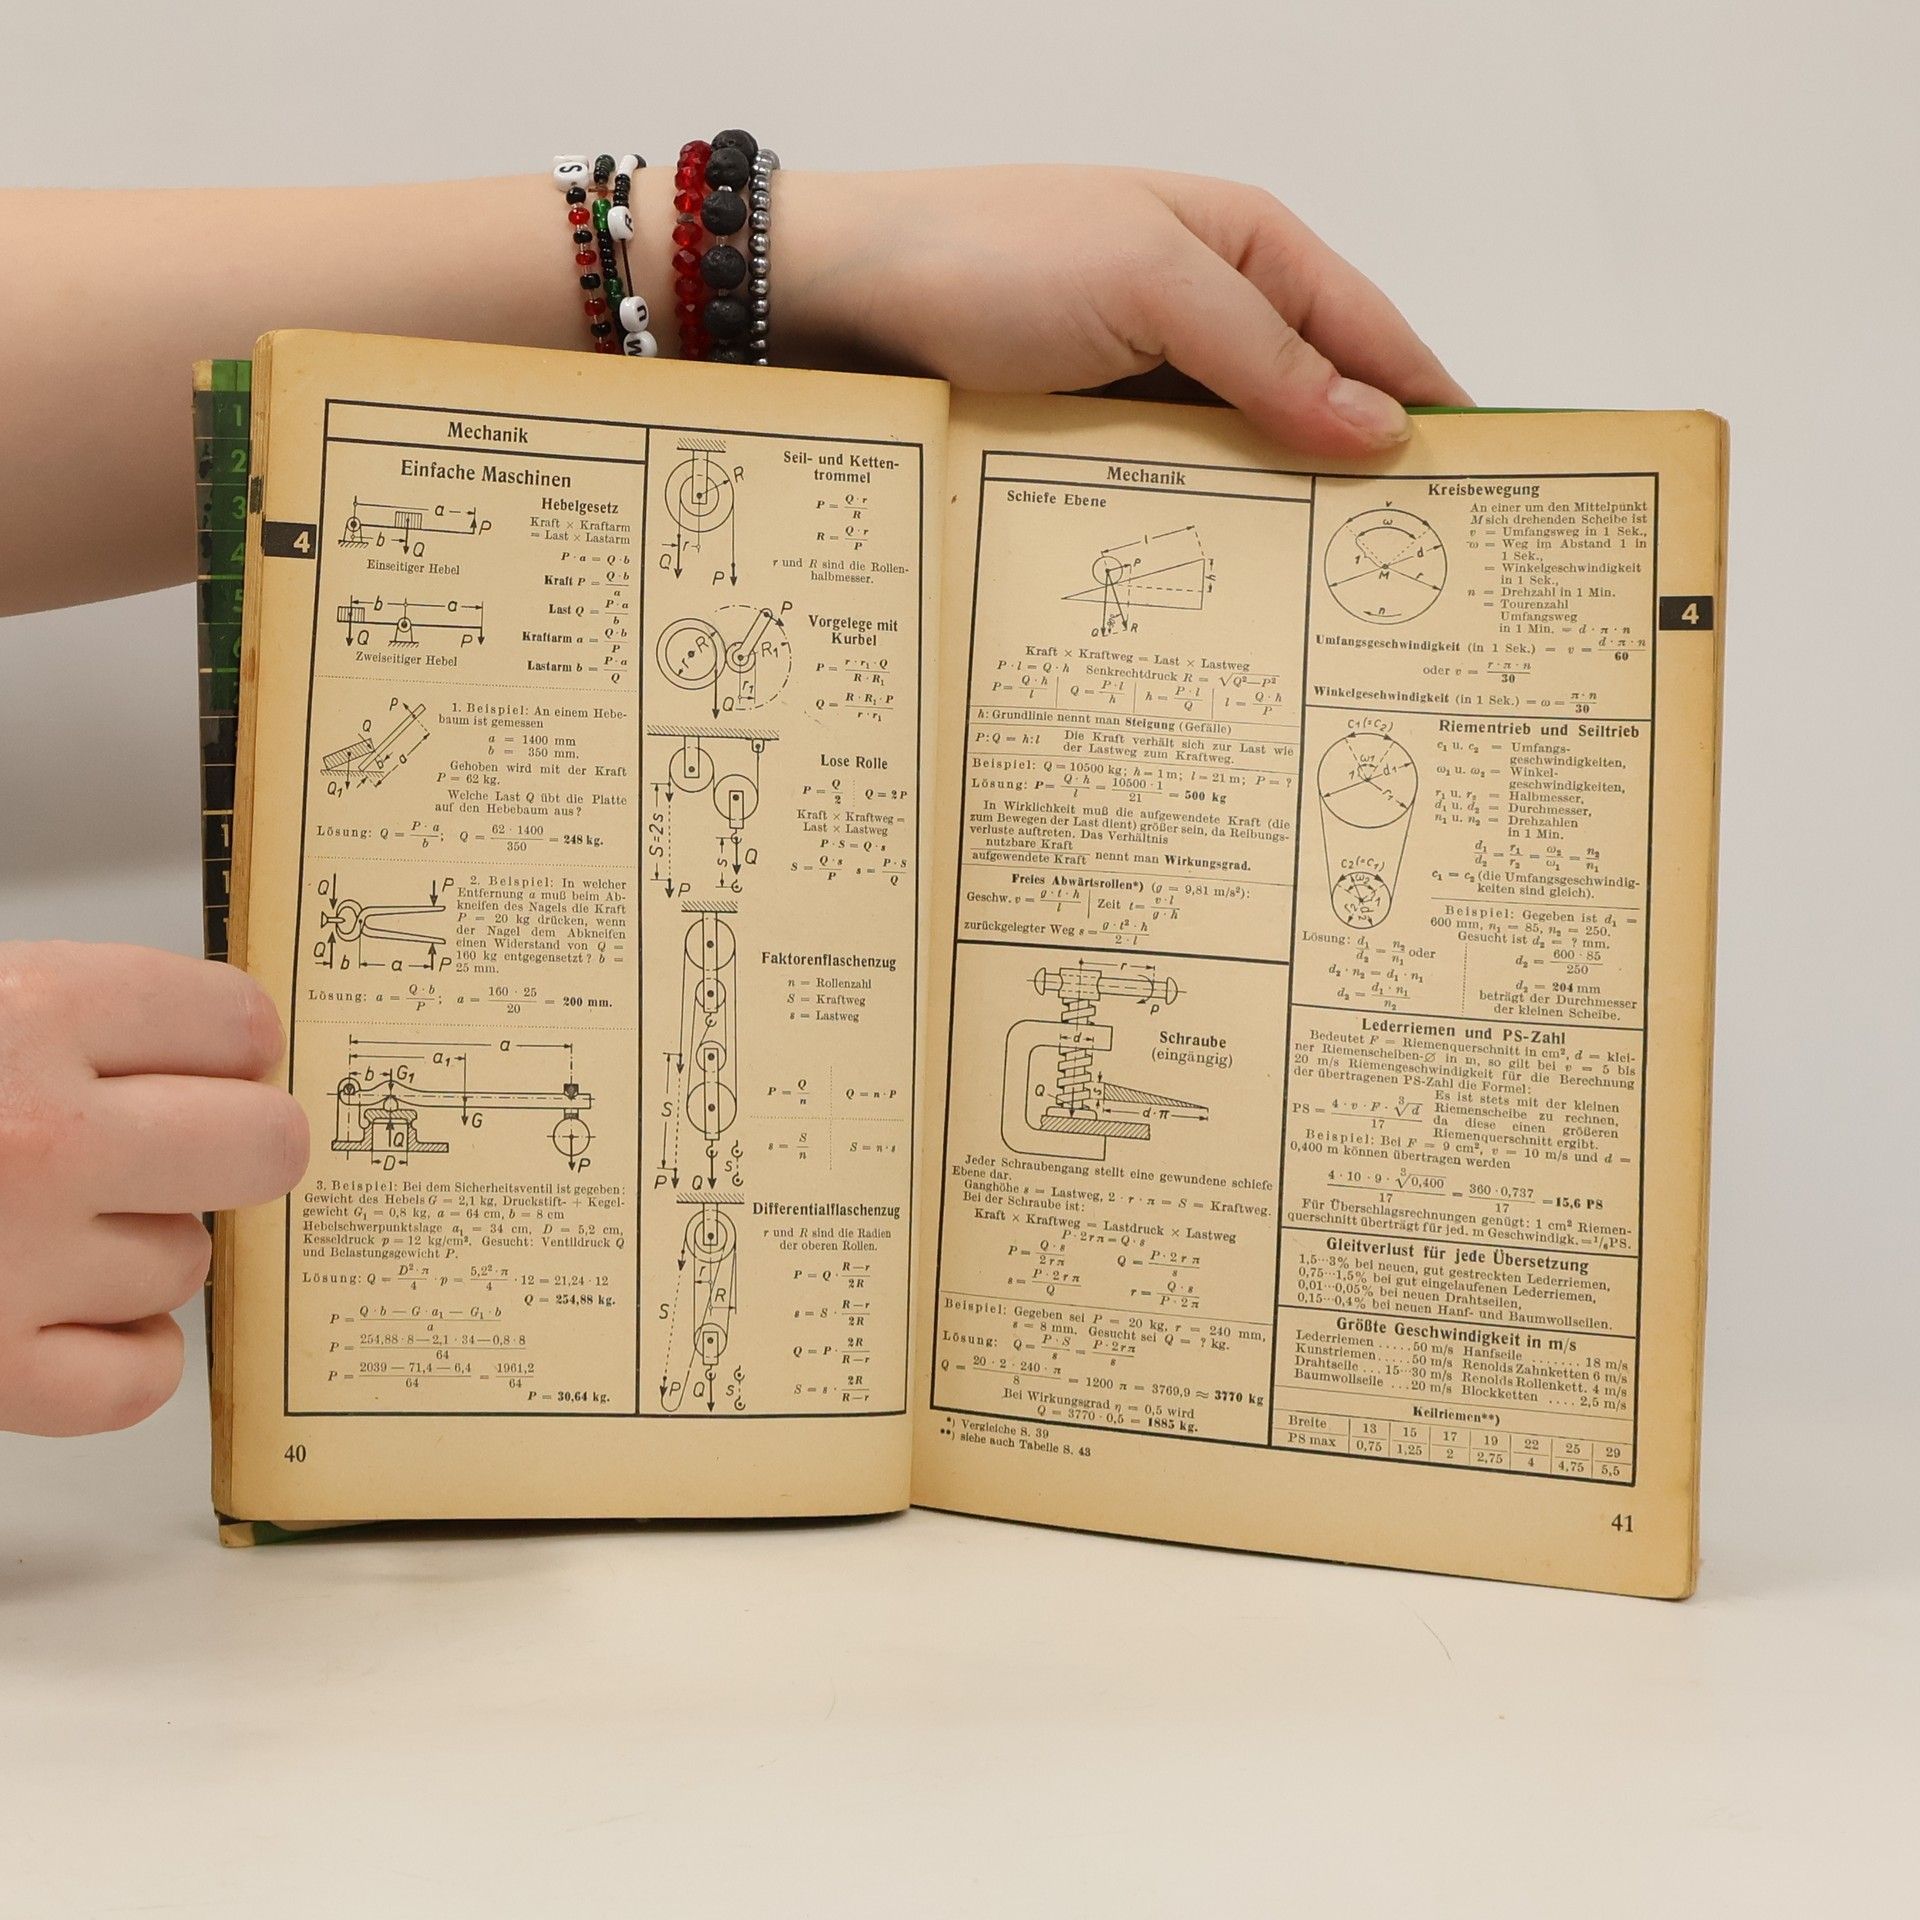 Mechanik
Einfache Maschinen
Hebelgesetz
Kraft × Kraftarm
= Last × Lastarm
P · a = Q · b
Kraft P = Q · b / a
Last Q = P · a / b
Kraftarm a = Q · b / P
Lastarm b = P · a / Q
Einseitiger Hebel
Zweiseitiger Hebel
1. Beispiel: An einem Hebe-
baum ist gemessen
a = 1400 mm
b = 350 mm.
Gehoben wird mit der Kraft
P = 62 kg.
Welche Last Q übt die Platte
auf den Hebebaum aus?
Lösung: Q = P · a / b; Q = 62 · 1400 / 350 = 248 kg.
2. Beispiel: In welcher
Entfernung a muß beim Ab-
kneifen des Nagels die Kraft
P = 20 kg drücken, wenn
der Nagel dem Abkneifen
einen Widerstand von Q =
160 kg entgegensetzt? b =
25 mm.
Lösung: a = Q · b / P; a = 160 · 25 / 20 = 200 mm.
3. Beispiel: Bei dem Sicherheitsventil ist gegeben:
Gewicht des Hebels G = 2,1 kg, Druckstift- + Kegel-
gewicht G₁ = 0,8 kg, a = 64 cm, b = 8 cm
Hebelschwerpunktslage a₁ = 34 cm, D = 5,2 cm,
Kesseldruck p = 12 kg/cm². Gesucht: Ventildruck Q
und Belastungsgewicht P.
Lösung: Q = D² · π / 4 · p = 5,2² · π / 4 · 12 = 21,24 · 12
Q = 254,88 kg.
P = Q · b — G · a₁ — G₁ · b / a
P = 254,88 · 8 — 2,1 · 34 — 0,8 · 8 / 64
P = 2039 — 71,4 — 6,4 / 64 = 1961,2 / 64
P = 30,64 kg.
Seil- und Ketten-
trommel
P = Q · r / R
R = Q · r / P
r und R sind die Rollen-
halbmesser.
Vorgelege mit
Kurbel
P = r · r₁ · Q / R · R₁
Q = R · R₁ · P / r · r₁
Lose Rolle
P = Q / 2 Q = 2P
Kraft × Kraftweg =
Last × Lastweg
P · S = Q · s
S = Q · s / P s = P · S / Q
Faktorenflaschenzug
n = Rollenzahl
S = Kraftweg
s = Lastweg
P = Q / n Q = n · P
s = S / n S = n · s
Differentialflaschenzug
r und R sind die Radien
der oberen Rollen.
P = Q · R — r / 2R
s = S · R — r / 2R
Q = P · 2R / R — r
S = s · 2R / R — r
4
40
Mechanik
Schiefe Ebene
Kraft × Kraftweg = Last × Lastweg
P · l = Q · h Senkrechtdruck R = √Q² — P²
P = Q · h / l Q = P · l / h h = P · l / Q l = Q · h / P
h: Grundlinie nennt man Steigung (Gefälle)
P : Q = h : l Die Kraft verhält sich zur Last wie
der Lastweg zum Kraftweg.
Beispiel: Q = 10500 kg; h = 1 m; l = 21 m; P = ?
Lösung: P = Q · h / l = 10500 · 1 / 21 = 500 kg
In Wirklichkeit muß die aufgewendete Kraft (die
zum Bewegen der Last dient) größer sein, da Reibungs-
verluste auftreten. Das Verhältnis
nutzbare Kraft / aufgewendete Kraft nennt man Wirkungsgrad.
Freies Abwärtsrollen*) (g = 9,81 m/s²):
Geschw. v = g · t · h / l Zeit t = v · l / g · h
zurückgelegter Weg s = g · t² · h / 2 · l
Schraube
(eingängig)
Jeder Schraubengang stellt eine gewundene schiefe
Ebene dar.
Ganghöhe s = Lastweg, 2 · r · π = S = Kraftweg.
Bei der Schraube ist:
Kraft × Kraftweg = Lastdruck × Lastweg
P · 2 r π = Q · s
P = Q · s / 2 r π Q = P · 2 r π / s
s = P · 2 r π / Q r = Q · s / P · 2 π
Beispiel: Gegeben sei P = 20 kg, r = 240 mm,
s = 8 mm. Gesucht sei Q = ? kg.
Lösung: Q = P · S / s = P · 2 r π / s
Q = 20 · 2 · 240 · π / 8 = 1200 π = 3769,9 ≈ 3770 kg
Bei Wirkungsgrad η = 0,5 wird
Q = 3770 · 0,5 = 1885 kg.
*) Vergleiche S. 39
**) siehe auch Tabelle S. 43
Kreisbewegung
An einer um den Mittelpunkt
M sich drehenden Scheibe ist
v = Umfangsweg in 1 Sek.,
ω = Weg im Abstand 1 in
1 Sek.,
= Winkelgeschwindigkeit
in 1 Sek.,
n = Drehzahl in 1 Min.
= Tourenzahl
Umfangsweg
in 1 Min. = d · π · n
Umfangsgeschwindigkeit (in 1 Sek.) = v = d · π · n / 60
oder v = r · π · n / 30
Winkelgeschwindigkeit (in 1 Sek.) = ω = π · n / 30
Riementrieb und Seiltrieb
c₁ u. c₂ = Umfangs-
geschwindigkeiten,
ω₁ u. ω₂ = Winkel-
geschwindigkeiten,
r₁ u. r₂ = Halbmesser,
d₁ u. d₂ = Durchmesser,
n₁ u. n₂ = Drehzahlen
in 1 Min.
d₁ / d₂ = r₁ / r₂ = ω₂ / ω₁ = n₂ / n₁
c₁ = c₂ (die Umfangsgeschwindig-
keiten sind gleich).
Beispiel: Gegeben ist d₁ =
600 mm, n₁ = 85, n₂ = 250.
Gesucht ist d₂ = ? mm.
Lösung: d₁ / d₂ = n₂ / n₁ oder
d₂ · n₂ = d₁ · n₁
d₂ = d₁ · n₁ / n₂
d₂ = 600 · 85 / 250
d₂ = 204 mm
beträgt der Durchmesser
der kleinen Scheibe.
Lederriemen und PS-Zahl
Bedeutet F = Riemenquerschnitt in cm², d = klei-
ner Riemenscheiben-∅ in m, so gilt bei v = 5 bis
20 m/s Riemengeschwindigkeit für die Berechnung
der übertragenen PS-Zahl die Formel:
PS = 4 · v · F · ∛d / 17
Es ist stets mit der kleinen
Riemenscheibe zu rechnen,
da diese einen größeren
Riemenquerschnitt ergibt.
Beispiel: Bei F = 9 cm², v = 10 m/s und d =
0,400 m können übertragen werden
4 · 10 · 9 · ∛0,400 / 17 = 360 · 0,737 / 17 = 15,6 PS
Für Überschlagsrechnungen genügt: 1 cm² Riemen-
querschnitt überträgt für jed. m Geschwindigk. = ¹/₆ PS.
Gleitverlust für jede Übersetzung
1,5···3% bei neuen, gut gestreckten Lederriemen,
0,75···1,5% bei gut eingelaufenen Lederriemen,
0,01···0,05% bei neuen Drahtseilen,
0,15···0,4% bei neuen Hanf- und Baumwollseilen.
Größte Geschwindigkeit in m/s
Lederriemen ..... 50 m/s Hanfseile ....... 18 m/s
Kunstriemen ..... 50 m/s Renolds Zahnketten 6 m/s
Drahtseile ... 15···30 m/s Renolds Rollenkett. 4 m/s
Baumwollseile ... 20 m/s Blockketten .... 2,5 m/s
Keilriemen**)
Breite 13 15 17 19 22 25 29
PS max 0,75 1,25 2 2,75 4 4,75 5,5
4
41